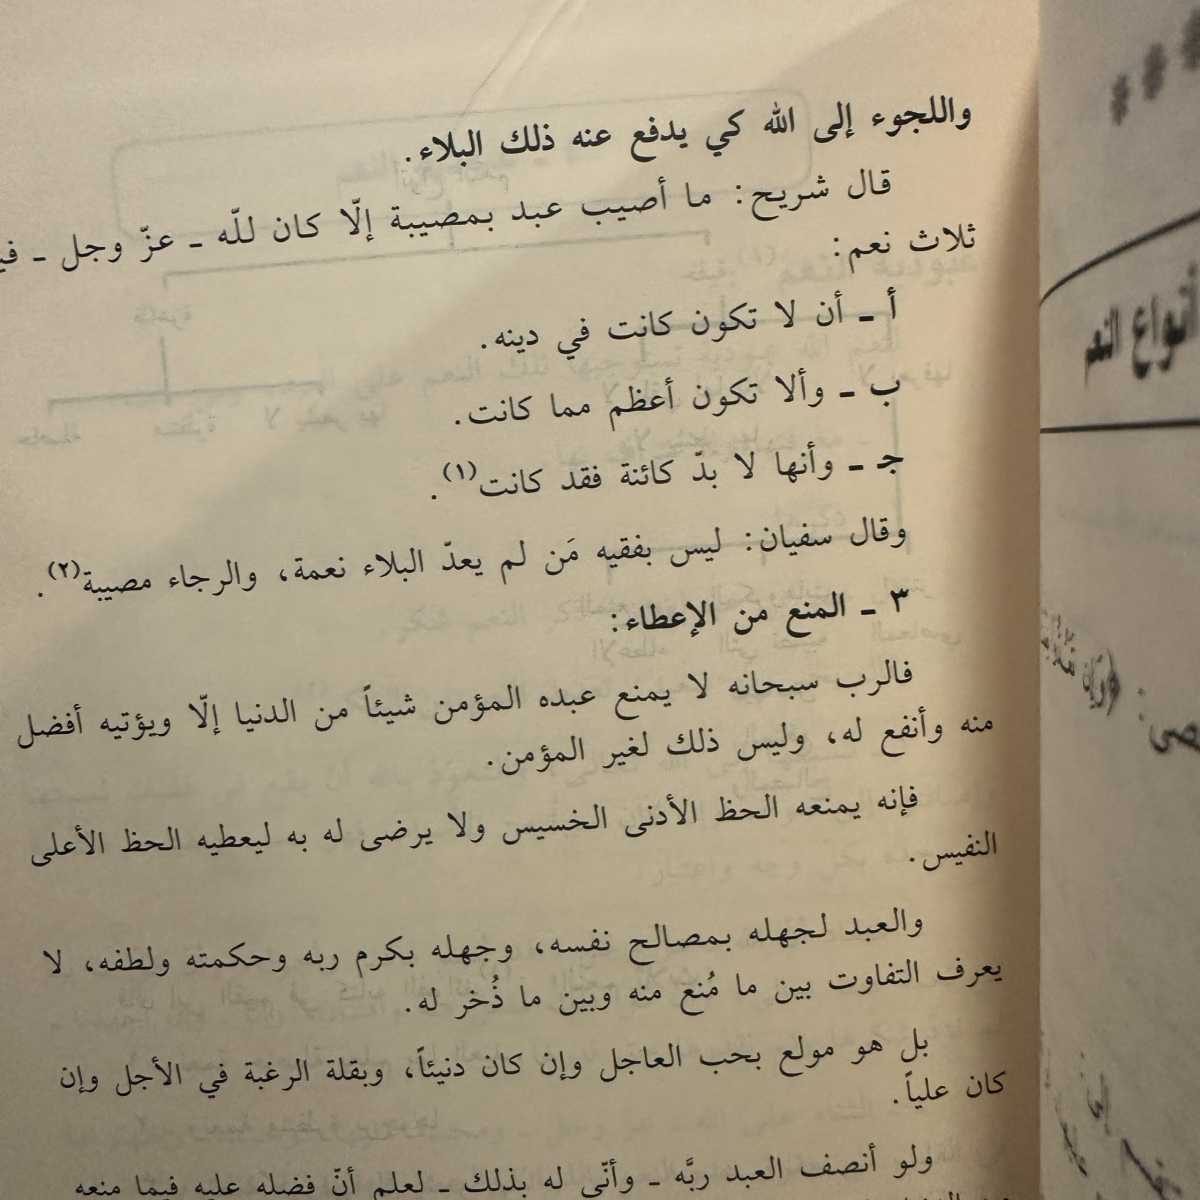 واللجوء إلى الله كي يدفع عنه ذلك البلاء.
قال شريح: ما أصيب عبد بمصيبة إلّا كان للّه ـ عزّ وجل ـ
ثلاث نعم:
أ ـ أن لا تكون كانت في دينه.
ب ـ وألا تكون أعظم مما كانت.
جـ ـ وأنها لا بدّ كائنة فقد كانت(١).
وقال سفيان: ليس بفقيه مَن لم يعدّ البلاء نعمة، والرجاء مصيبة(٢).
٣ ـ المنع من الإعطاء:
فالرب سبحانه لا يمنع عبده المؤمن شيئاً من الدنيا إلّا ويؤتيه أفضل
منه وأنفع له، وليس ذلك لغير المؤمن.
فإنه يمنعه الحظ الأدنى الخسيس ولا يرضى له به ليعطيه الحظ الأعلى
النفيس.
والعبد لجهله بمصالح نفسه، وجهله بكرم ربه وحكمته ولطفه، لا
يعرف التفاوت بين ما مُنع منه وبين ما ذُخر له.
بل هو مولع بحب العاجل وإن كان دنيئاً، وبقلة الرغبة في الأجل وإن
كان علياً.
ولو أنصف العبد ربَّه ـ وأنّى له بذلك ـ لعلم أنّ فضله عليه فيما منعه
أنواع النعم